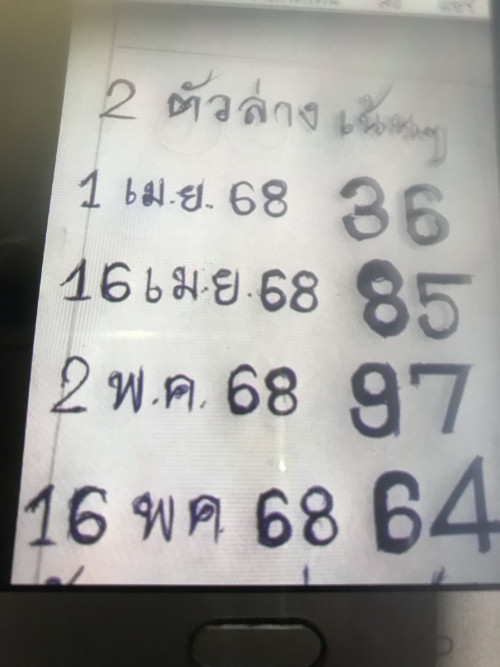 2 ตัวล่าง เน้นๆ
1 เม.ย. 68 36
16 เม.ย. 68 85
2 พ.ค. 68 97
16 พค 68 64